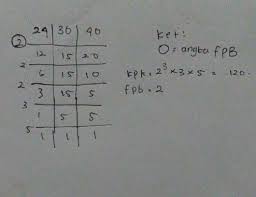 24 | 30 | 40
2 12 | 15 | 20
2 6 | 15 | 10
2 3 | 15 | 5
3 1 | 5 | 5
5 1 | 1 | 1
Ket:
O = angka FPB
KPK = 2³ × 3 × 5 = 120
FPB = 2